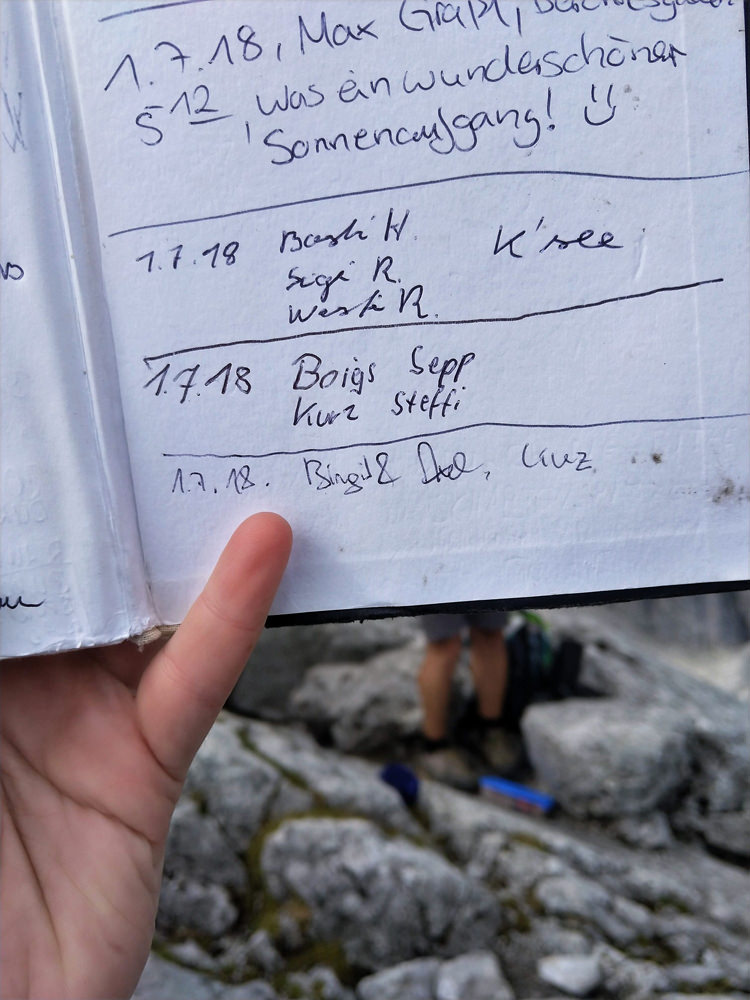 1.7.18, Max
5 12, was ein wunderschöner
Sonnenaufgang!
1.7.18 Basti H. K'see
Sigi R.
Westi R.
1.7.18 Boigs Sepp
Kurz Steffi
1.7.18. Birgit & Axel, Linz